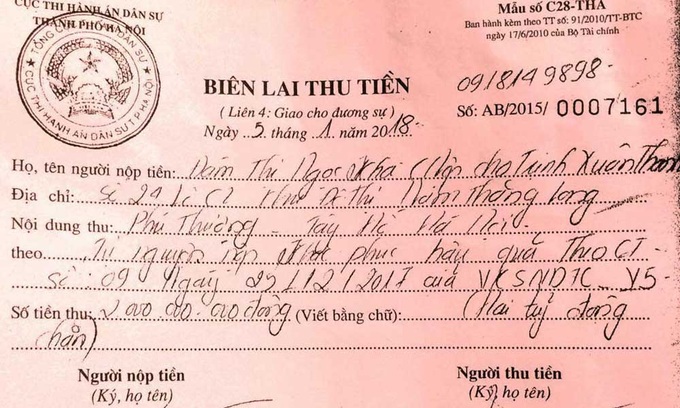 CỤC THI HÀNH ÁN DÂN SỰ
THÀNH PHỐ HÀ NỘI
Mẫu số C28-THA
Ban hành kèm theo TT số: 91/2010/TT-BTC
ngày 17/6/2010 của Bộ Tài chính
TỔNG CỤC THI HÀNH ÁN DÂN SỰ
CỤC THI HÀNH ÁN DÂN SỰ T.P HÀ NỘI
BIÊN LAI THU TIỀN
0918149898
(Liên 4: Giao cho đương sự)
Số: AB/2015/ 0007161
Ngày 5 tháng 1 năm 2018
Họ, tên người nộp tiền: Đàm Thị Ngọc Kha (Nộp cho Trịnh Xuân Thanh
Địa chỉ: Số 24 Khu Đô Thị Nam Thăng Long
Nội dung thu: Phú Thượng - Tây Hồ Hà Nội
theo Tự nguyện nộp khắc phục hậu quả Theo CT
số: 09 Ngày 25/12/2017 của VKSNDTC V5
Số tiền thu: 2000.000.000 đồng (Viết bằng chữ): (Hai tỷ đồng
chẵn)
Người nộp tiền
Người thu tiền
(Ký, họ tên)
(Ký, họ tên)